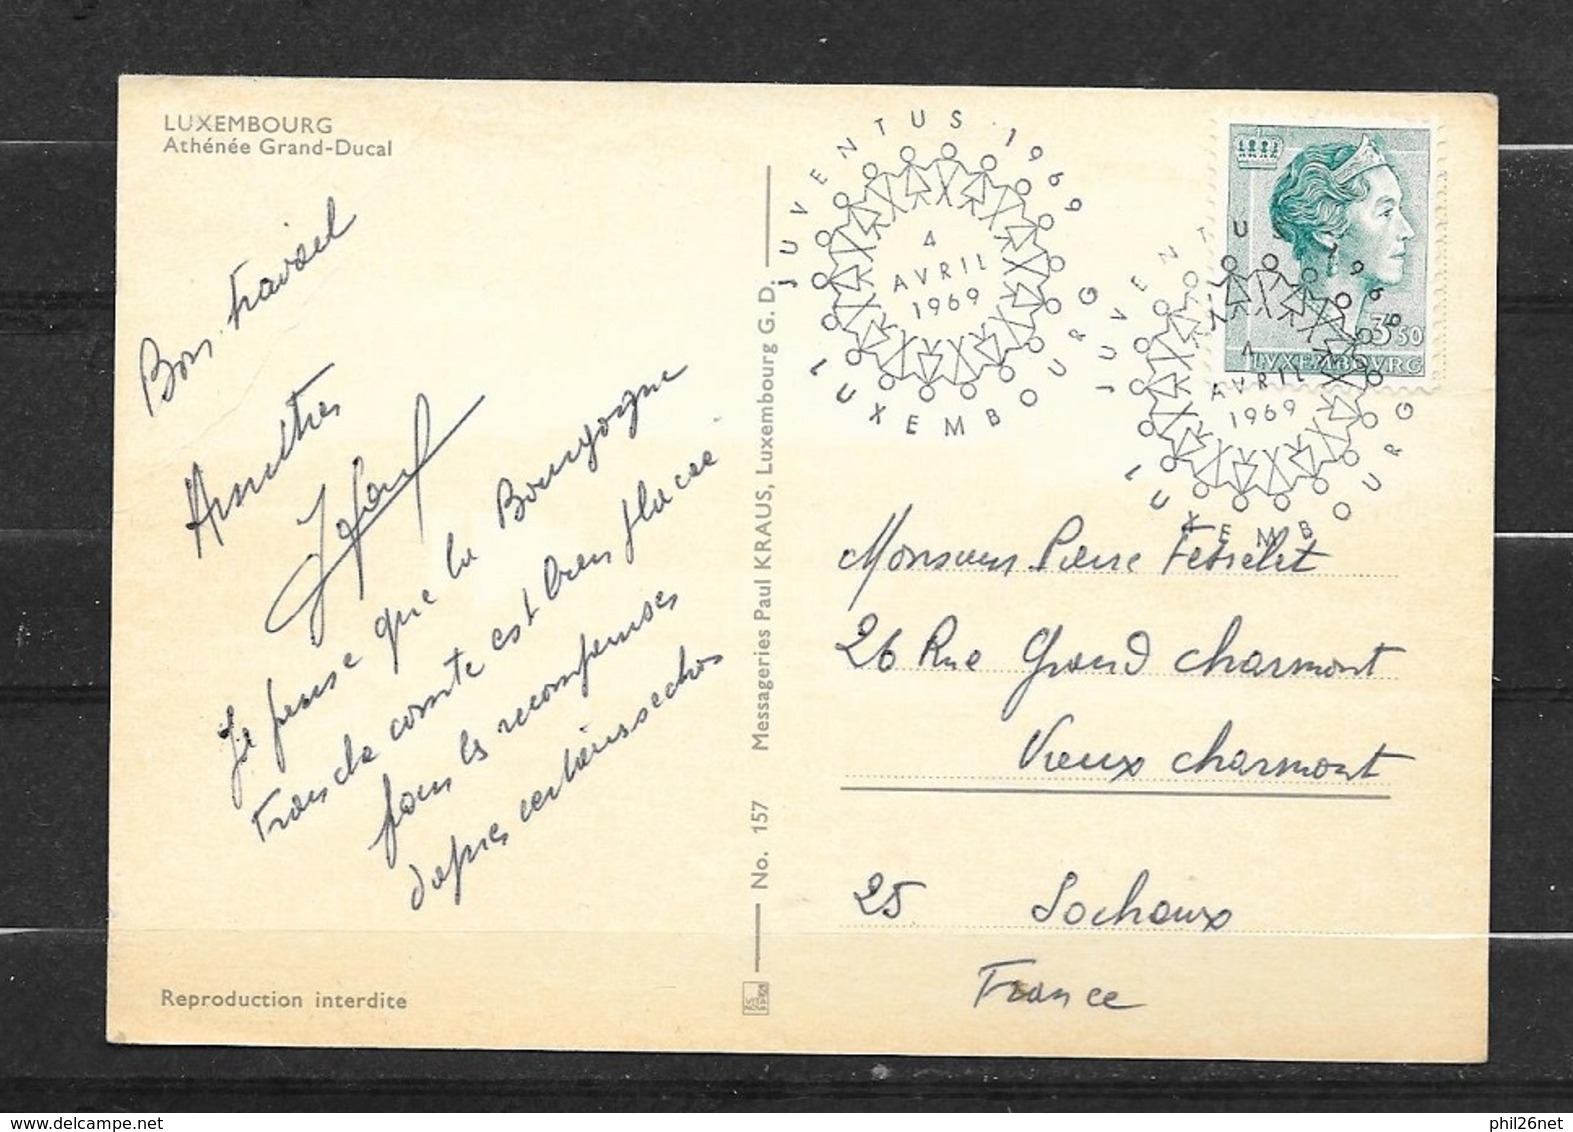 LUXEMBOURG
Athénée Grand-Ducal
Bon travail
Amitiés
Je pense que la Bourgogne
Franche comte est bien placée
pour les recompenses
d'apres certains echos
Reproduction interdite
No. 157 Messageries Paul KRAUS, Luxembourg G. D.
JUVENTUS 1969
4
AVRIL
1969
LUXEMBOURG
JUVENTUS 1969
4
AVRIL
1969
LUXEMBOURG
3,50
LVXEMBOVRG
Monsieur Pierre
26 Rue Grand Charmont
Vieux Charmont
25 Sochaux
France
phil26net